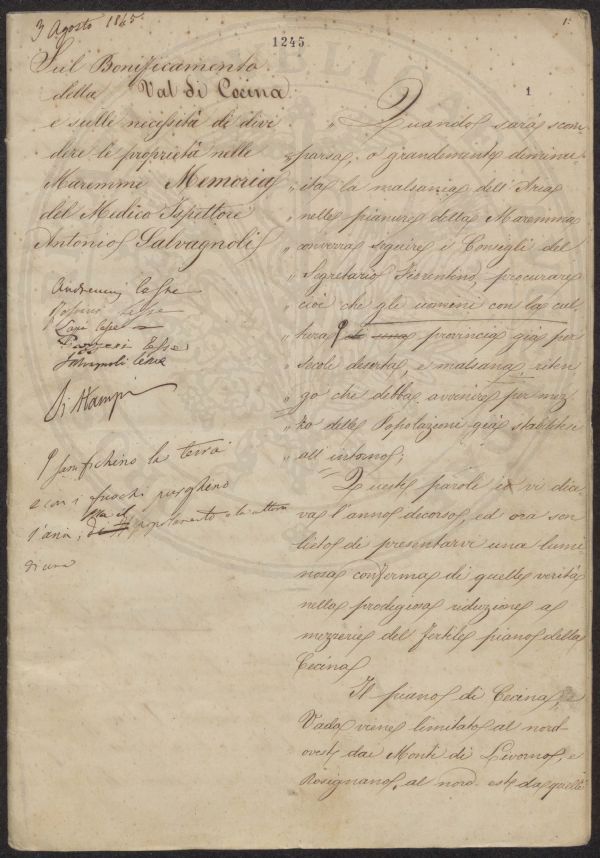 3 Agosto 1865.
1.
1245
1
Sul Bonificamento
della Val di Cecina
e sulle necessità di divi
dere le proprietà nelle
Maremme Memoria
del Medico Ispettore
Antonio Salvagnoli
Andreucci lesse
lesse
Lapi lesse
lesse
Salvagnoli lesse
Si Stampi
santifichino la terra
e con i fuochi purghino
l'aria;
di una
" Quando sarà scom
" parsa, o grandemente diminu
" ita la malsania dell'Aria
" nelle pianure della Maremma
" converrà seguire i Consigli del
" Segretario Fiorentino, procurare
" cioè che gli uomini con la cul
" tura provincia già per
" secoli deserta, e malsana riten
" go che debba avvenire per mez
" zo delle Popolazioni già stabilite
" all'intorno;
Queste parole io vi dice
va l'anno decorso, ed ora son
lieto di presentarvi una lumi
nosa conferma di quelle verità
nella prodigiosa riduzione a
mezzerie del fertile piano della
Cecina
Il piano di Cecina, e
Vada viene limitato al nord-
ovest dai Monti di Livorno, e
Rosignano, al nord-est da quelli